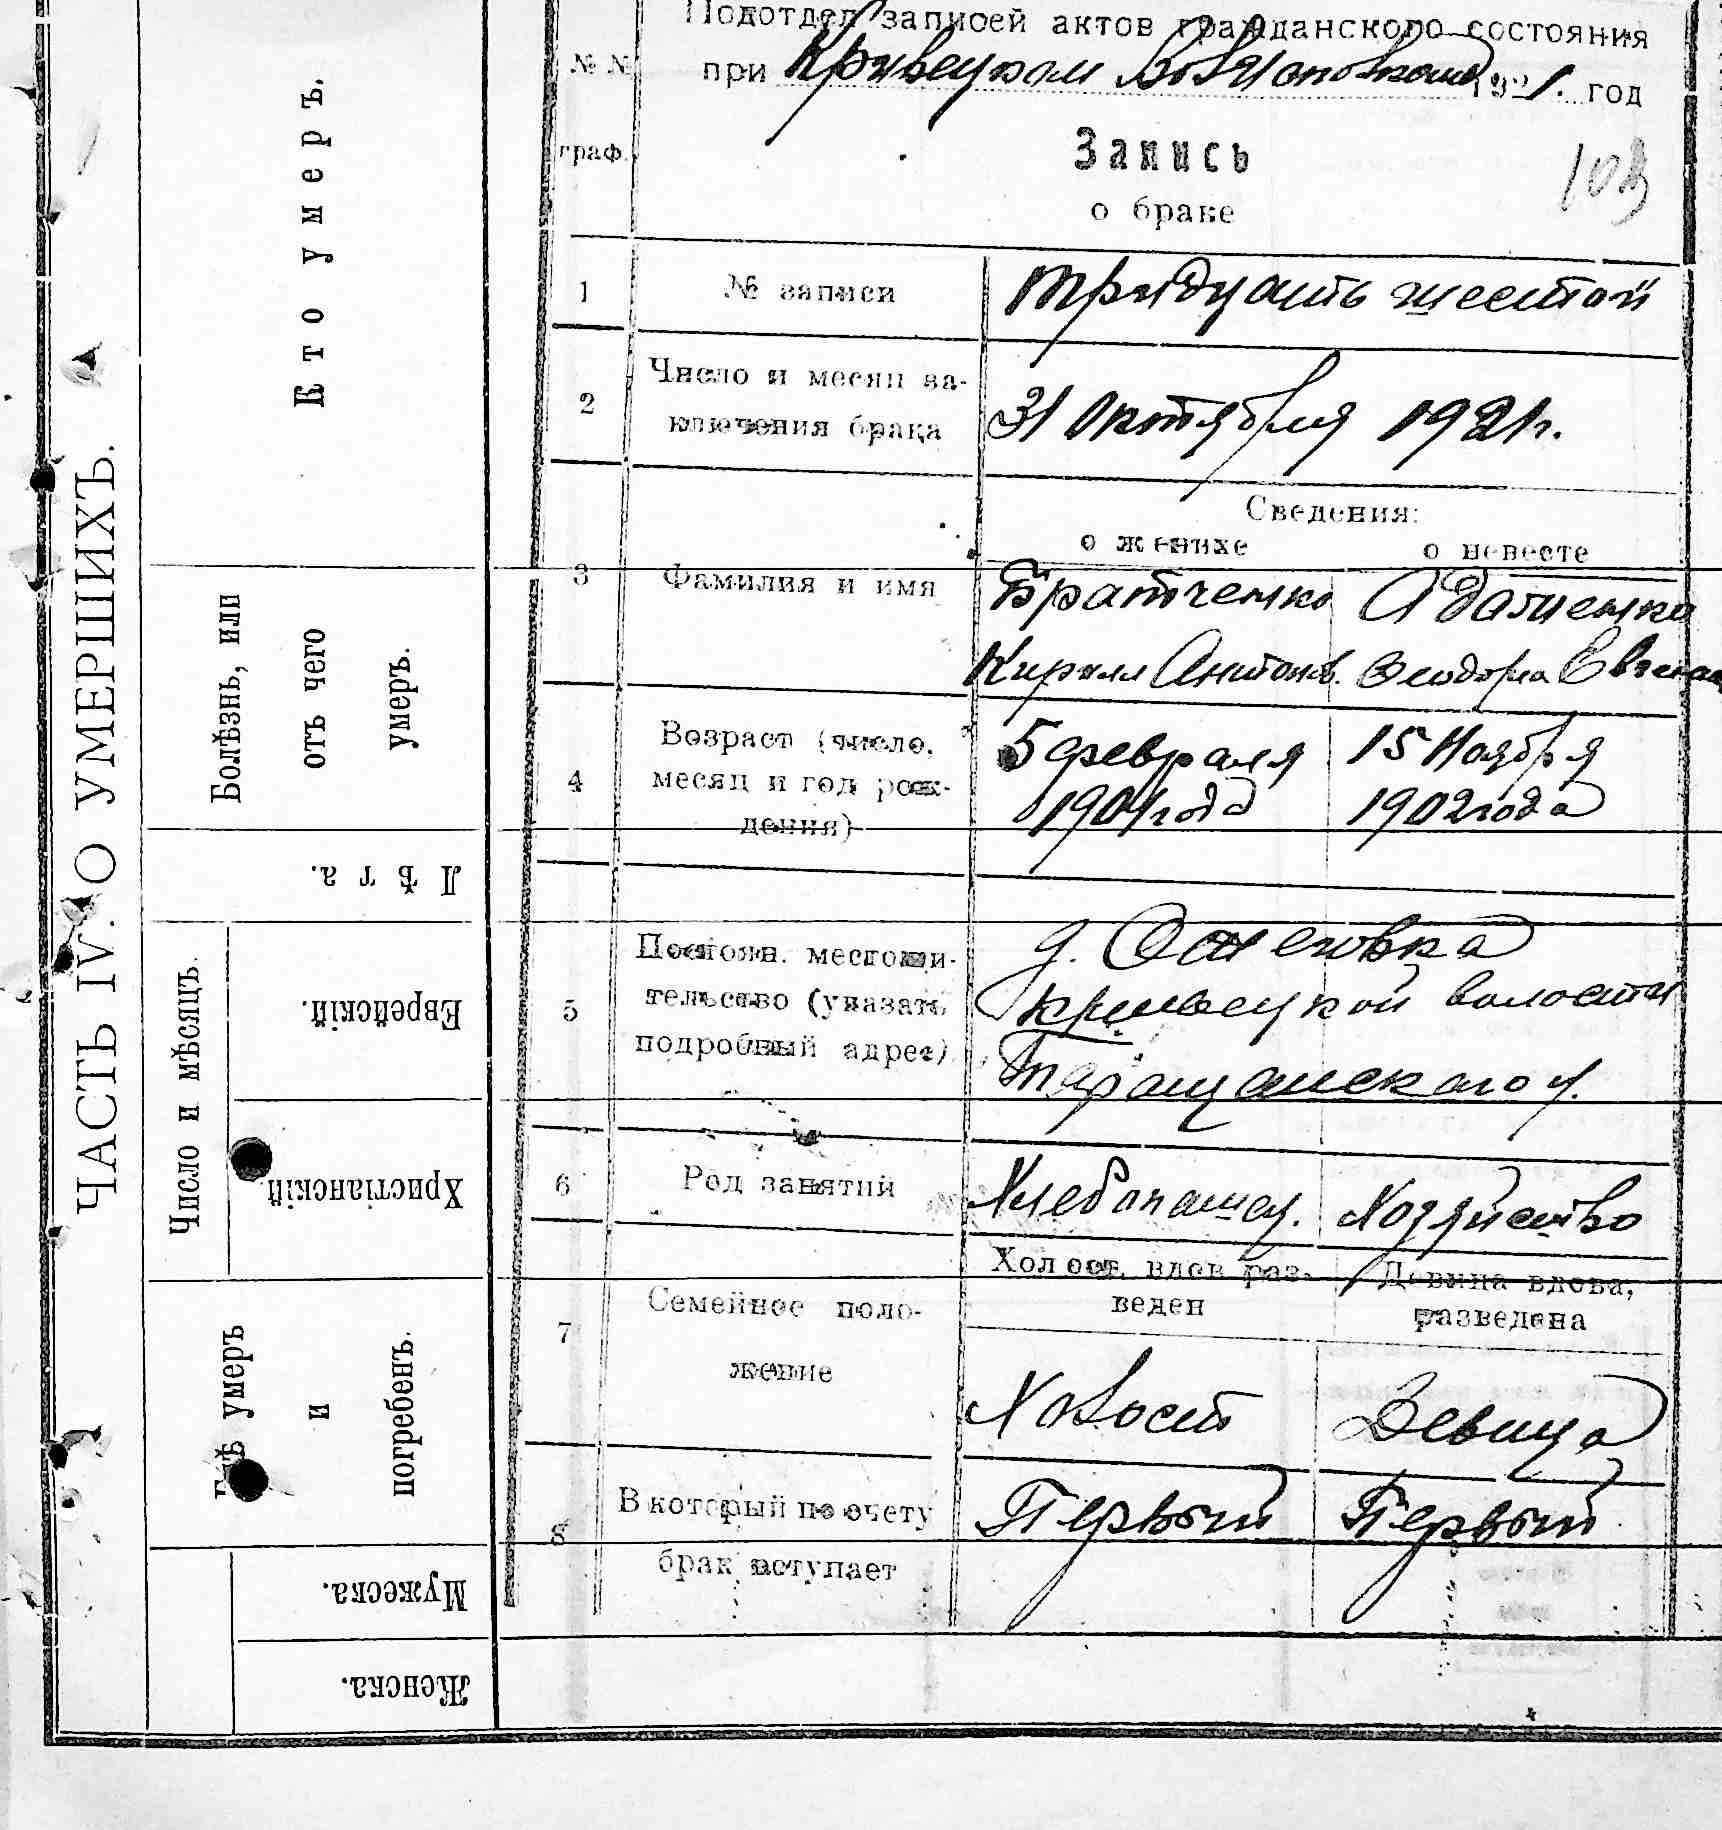 ЧАСТЬ IV. О УМЕРШИХЪ.
Кто умеръ.
Болѣзнь, или
отъ чего
умеръ.
Лѣта.
Число и мѣсяцъ.
Еврейскій.
Христіанскій.
умеръ
и
погребенъ.
Мужеска.
Женска.
Подотдел записей актов гражданского состояния
при Кривецком 1921. год
№ №
граф.
Запись
о браке
103
1 № записи Тридцать шестой
2 Число и месяц за-
ключения брака 31 Октября 1921 г.
Сведения:
о женихе о невесте
3 Фамилия и имя Братченко
Кирилл Антонов. Феодора
4 Возраст (число, 5 февраля 15 Ноября
месяц и год рож- 1901 года 1902 года
дения)
5 Постоян. местожи- д.
тельство (указать Кривецкой волости
подробный адрес) Таращанского у.
6 Род занятий Хлебопашец. Хозяйство
Холост, вдов раз- Девица вдова,
веден разведена
7 Семейное поло-
жение Холост Девица
8 В который по счету Первый Первый
брак вступает